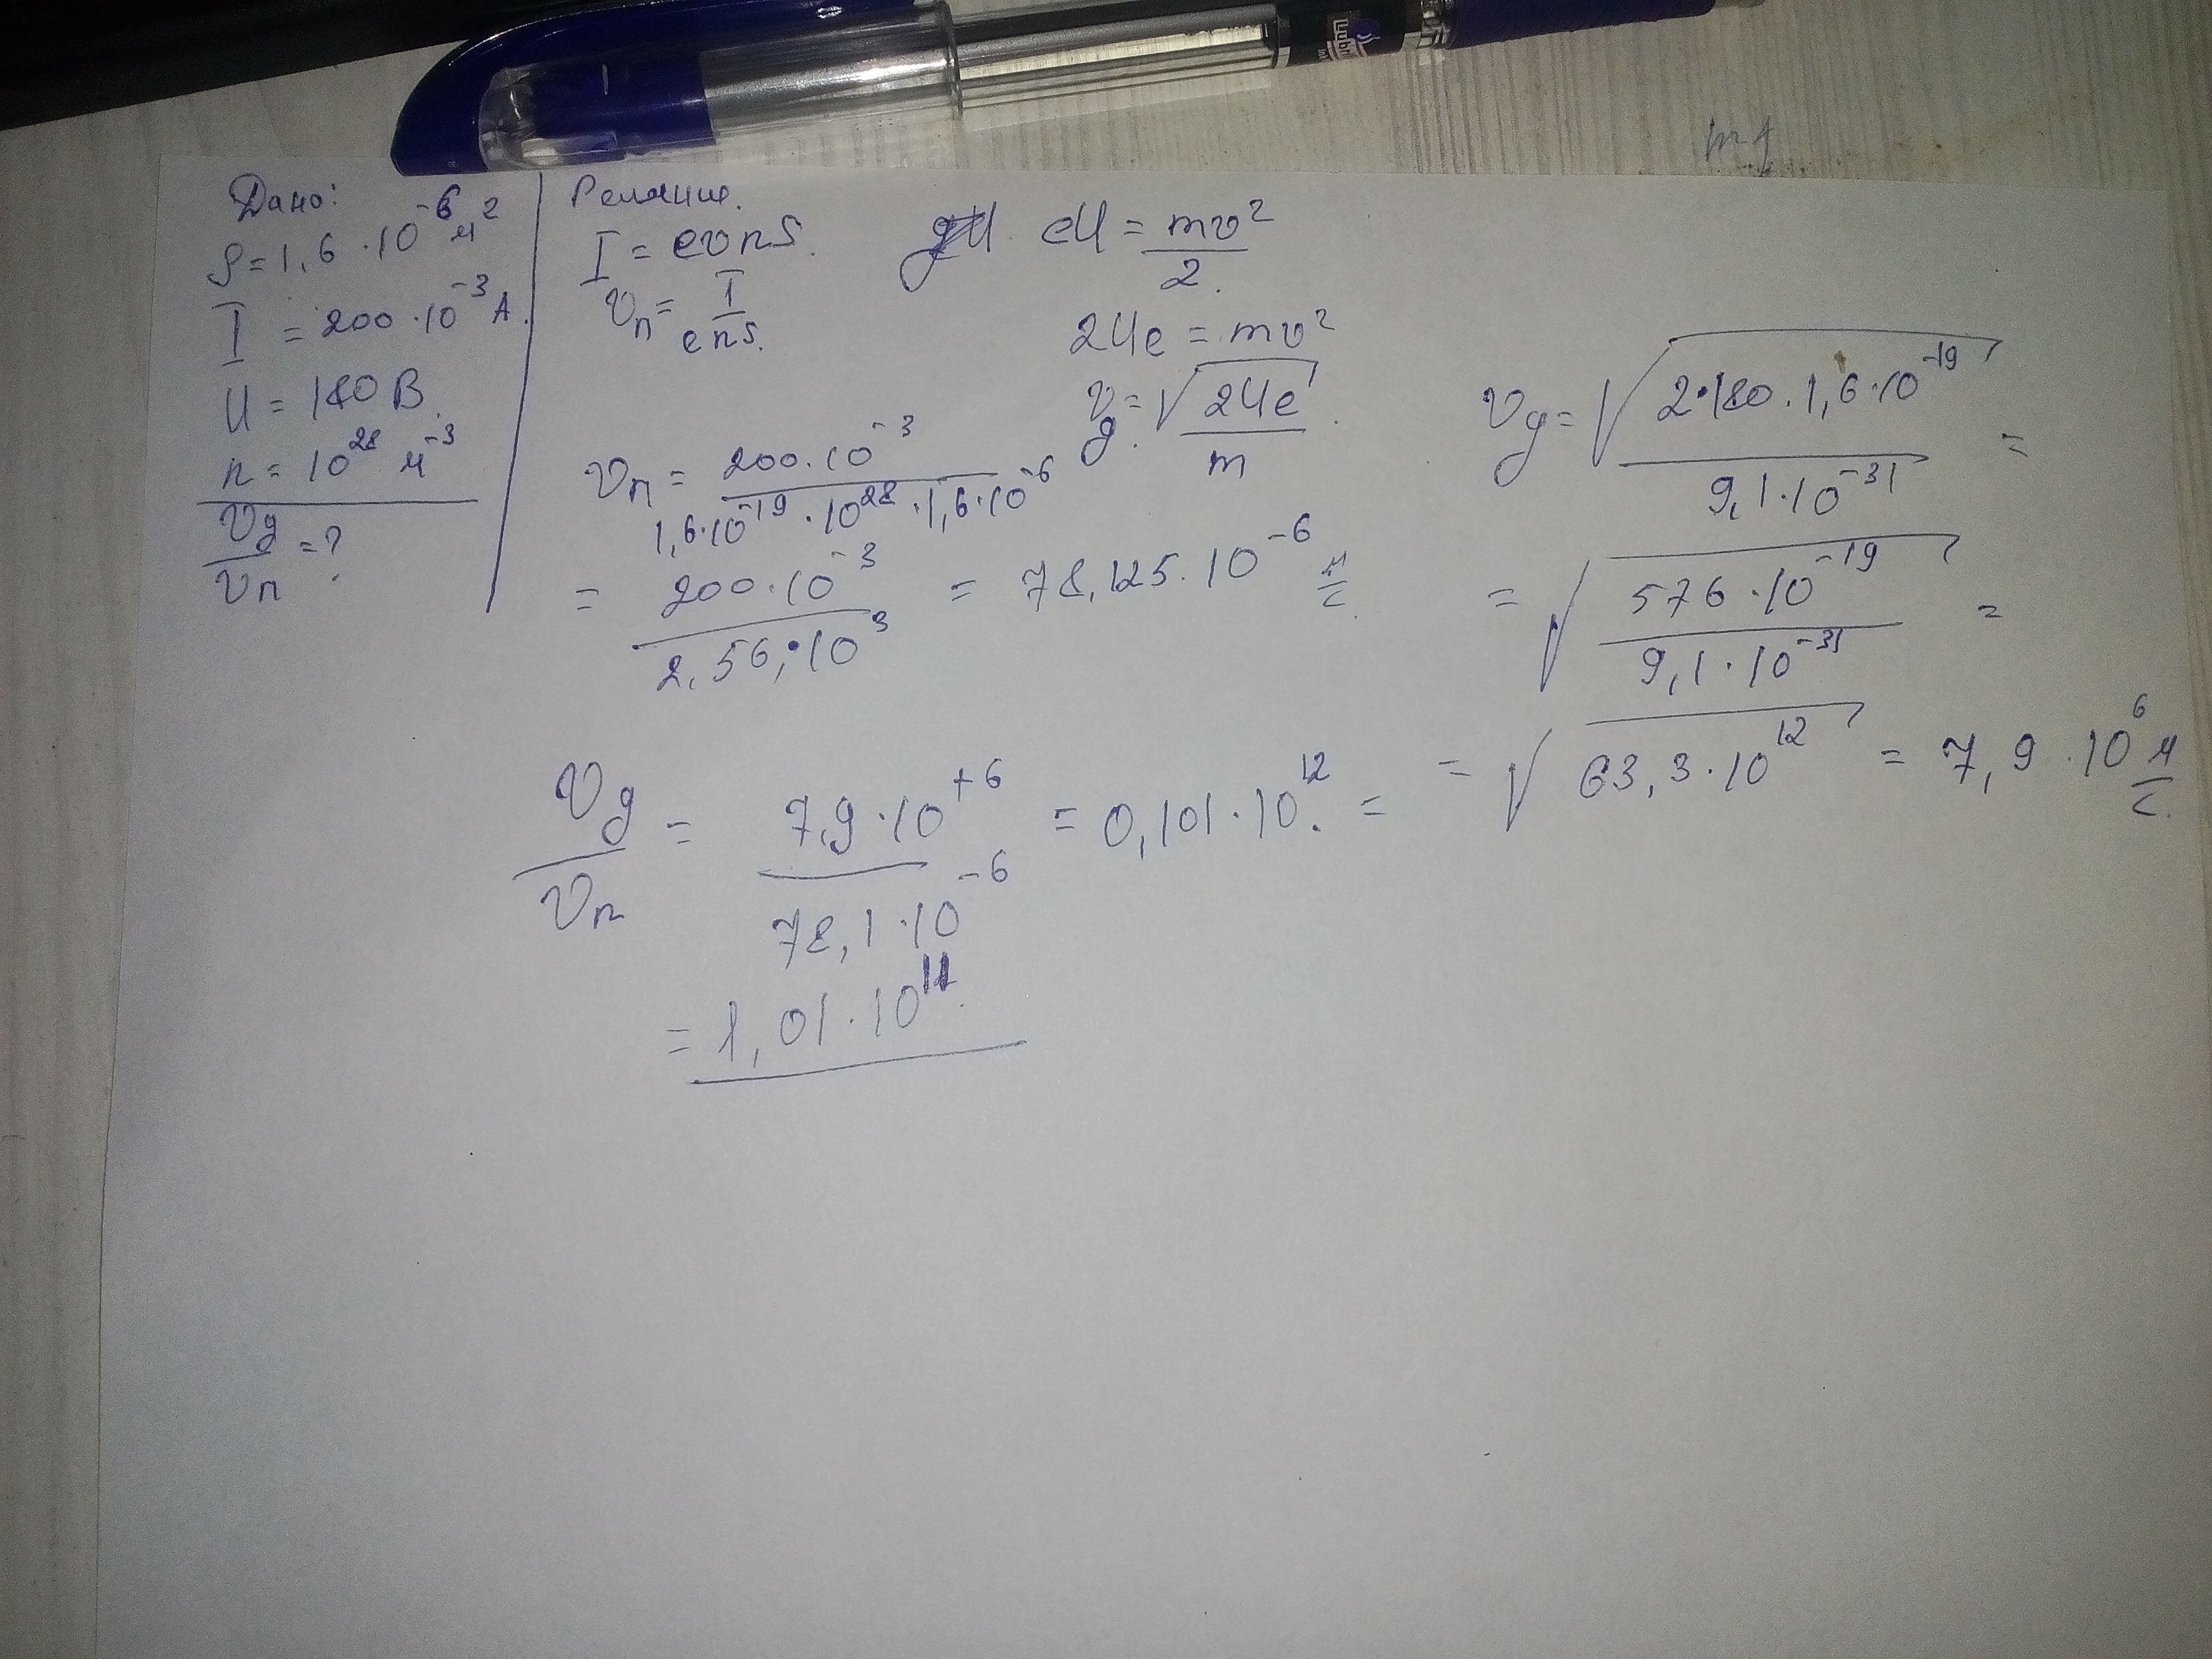 Дано:
S = 1,6 · 10⁻⁶ м²
I = 200 · 10⁻³ А.
U = 180 В.
n = 10²⁸ м⁻³
vg/vп = ?
Решение.
I = evnS.
vп = I/enS.
vп = 200·10⁻³/1,6·10⁻¹⁹·10²⁸·1,6·10⁻⁶
= 200·10⁻³/2,56·10³ = 78,125·10⁻⁶ м/с.
eU = mv²/2.
2Ue = mv²
vg = √2Ue/m.
vg = √2·180·1,6·10⁻¹⁹/9,1·10⁻³¹ =
= √576·10⁻¹⁹/9,1·10⁻³¹ =
= √63,3·10¹² = 7,9·10⁶ м/с.
vg/vп = 7,9·10⁺⁶/78,1·10⁻⁶ = 0,101·10¹². =
= 1,01·10¹¹.